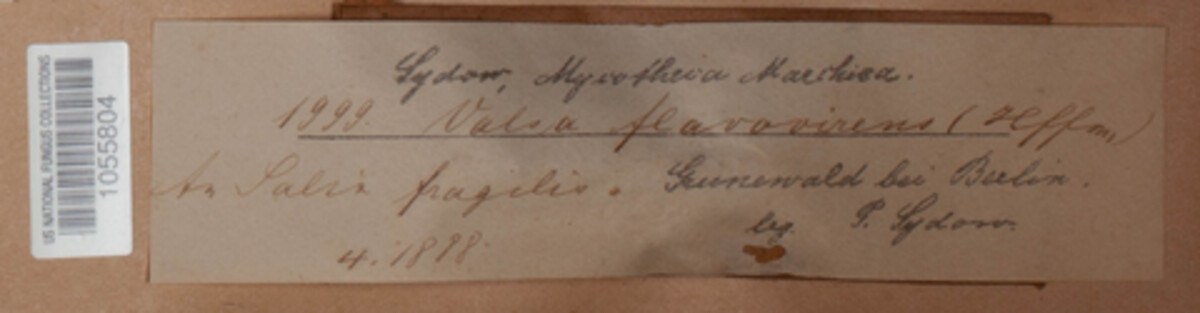 US NATIONAL FUNGUS COLLECTIONS
1055804
Sydow, Mycotheca Marchica.
1999. Valsa flavovirens (Hffm.)
An Salix fragilis. Grunewald bei Berlin.
4. 1888. leg. P. Sydow.